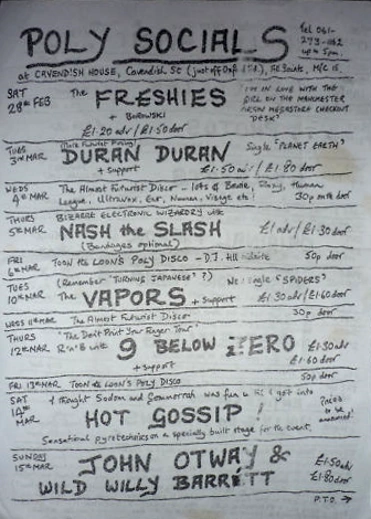 POLY SOCIALS
Tel 061-
273-1162
up to 5pm
at CAVENDISH HOUSE, Cavendish St (just off Oxf. Rd.), All Saints, M/c 15.
SAT
28th FEB
The FRESHIES
+ BOROWSKI
£1.20 adv / £1.50 door
I'M IN LOVE WITH THE
GIRL ON THE MANCHESTER
VIRGIN MEGASTORE CHECKOUT
DESK?
TUES
3rd MAR
(More Futurist Posing)
DURAN DURAN
+ support
Single "PLANET EARTH"
£1.50 adv / £1.80 door
WEDS
4th MAR
The Almost Futurist Disco - lots of Bowie, Roxy, Human
League, Ultravox, Eno, Numan, Visage etc!
30p on the door
THURS
5th MAR
BIZARRE ELECTRONIC WIZARDRY with
NASH the SLASH
(Bandages optional)
£1 adv / £1.30 door
FRI
6th MAR
TOON the LOON'S POLY DISCO - D.J.
50p door
TUES
10th MAR
(Remember "TURNING JAPANESE"?)
The VAPORS + support
New single "SPIDERS"
£1.30 adv / £1.60 door
WEDS 11th MAR
The Almost Futurist Disco
30p door
THURS
12th MAR
"The Don't Point Your Finger Tour"
R'n'B with 9 BELOW ZERO
+ support
£1.30 adv
£1.60 door
FRI 13th MAR
TOON the LOON'S POLY DISCO
50p door
SAT
14th
MAR
I thought Sodom and Gommorrah was fun until I got into
HOT GOSSIP!
Prices
to be
announced!
Sensational pyrotechnics on a specially built stage for this event.
SUNDAY
15th MAR
JOHN OTWAY &
WILD WILLY BARRETT
£1.50 adv
£1.80 door
P.T.O. →